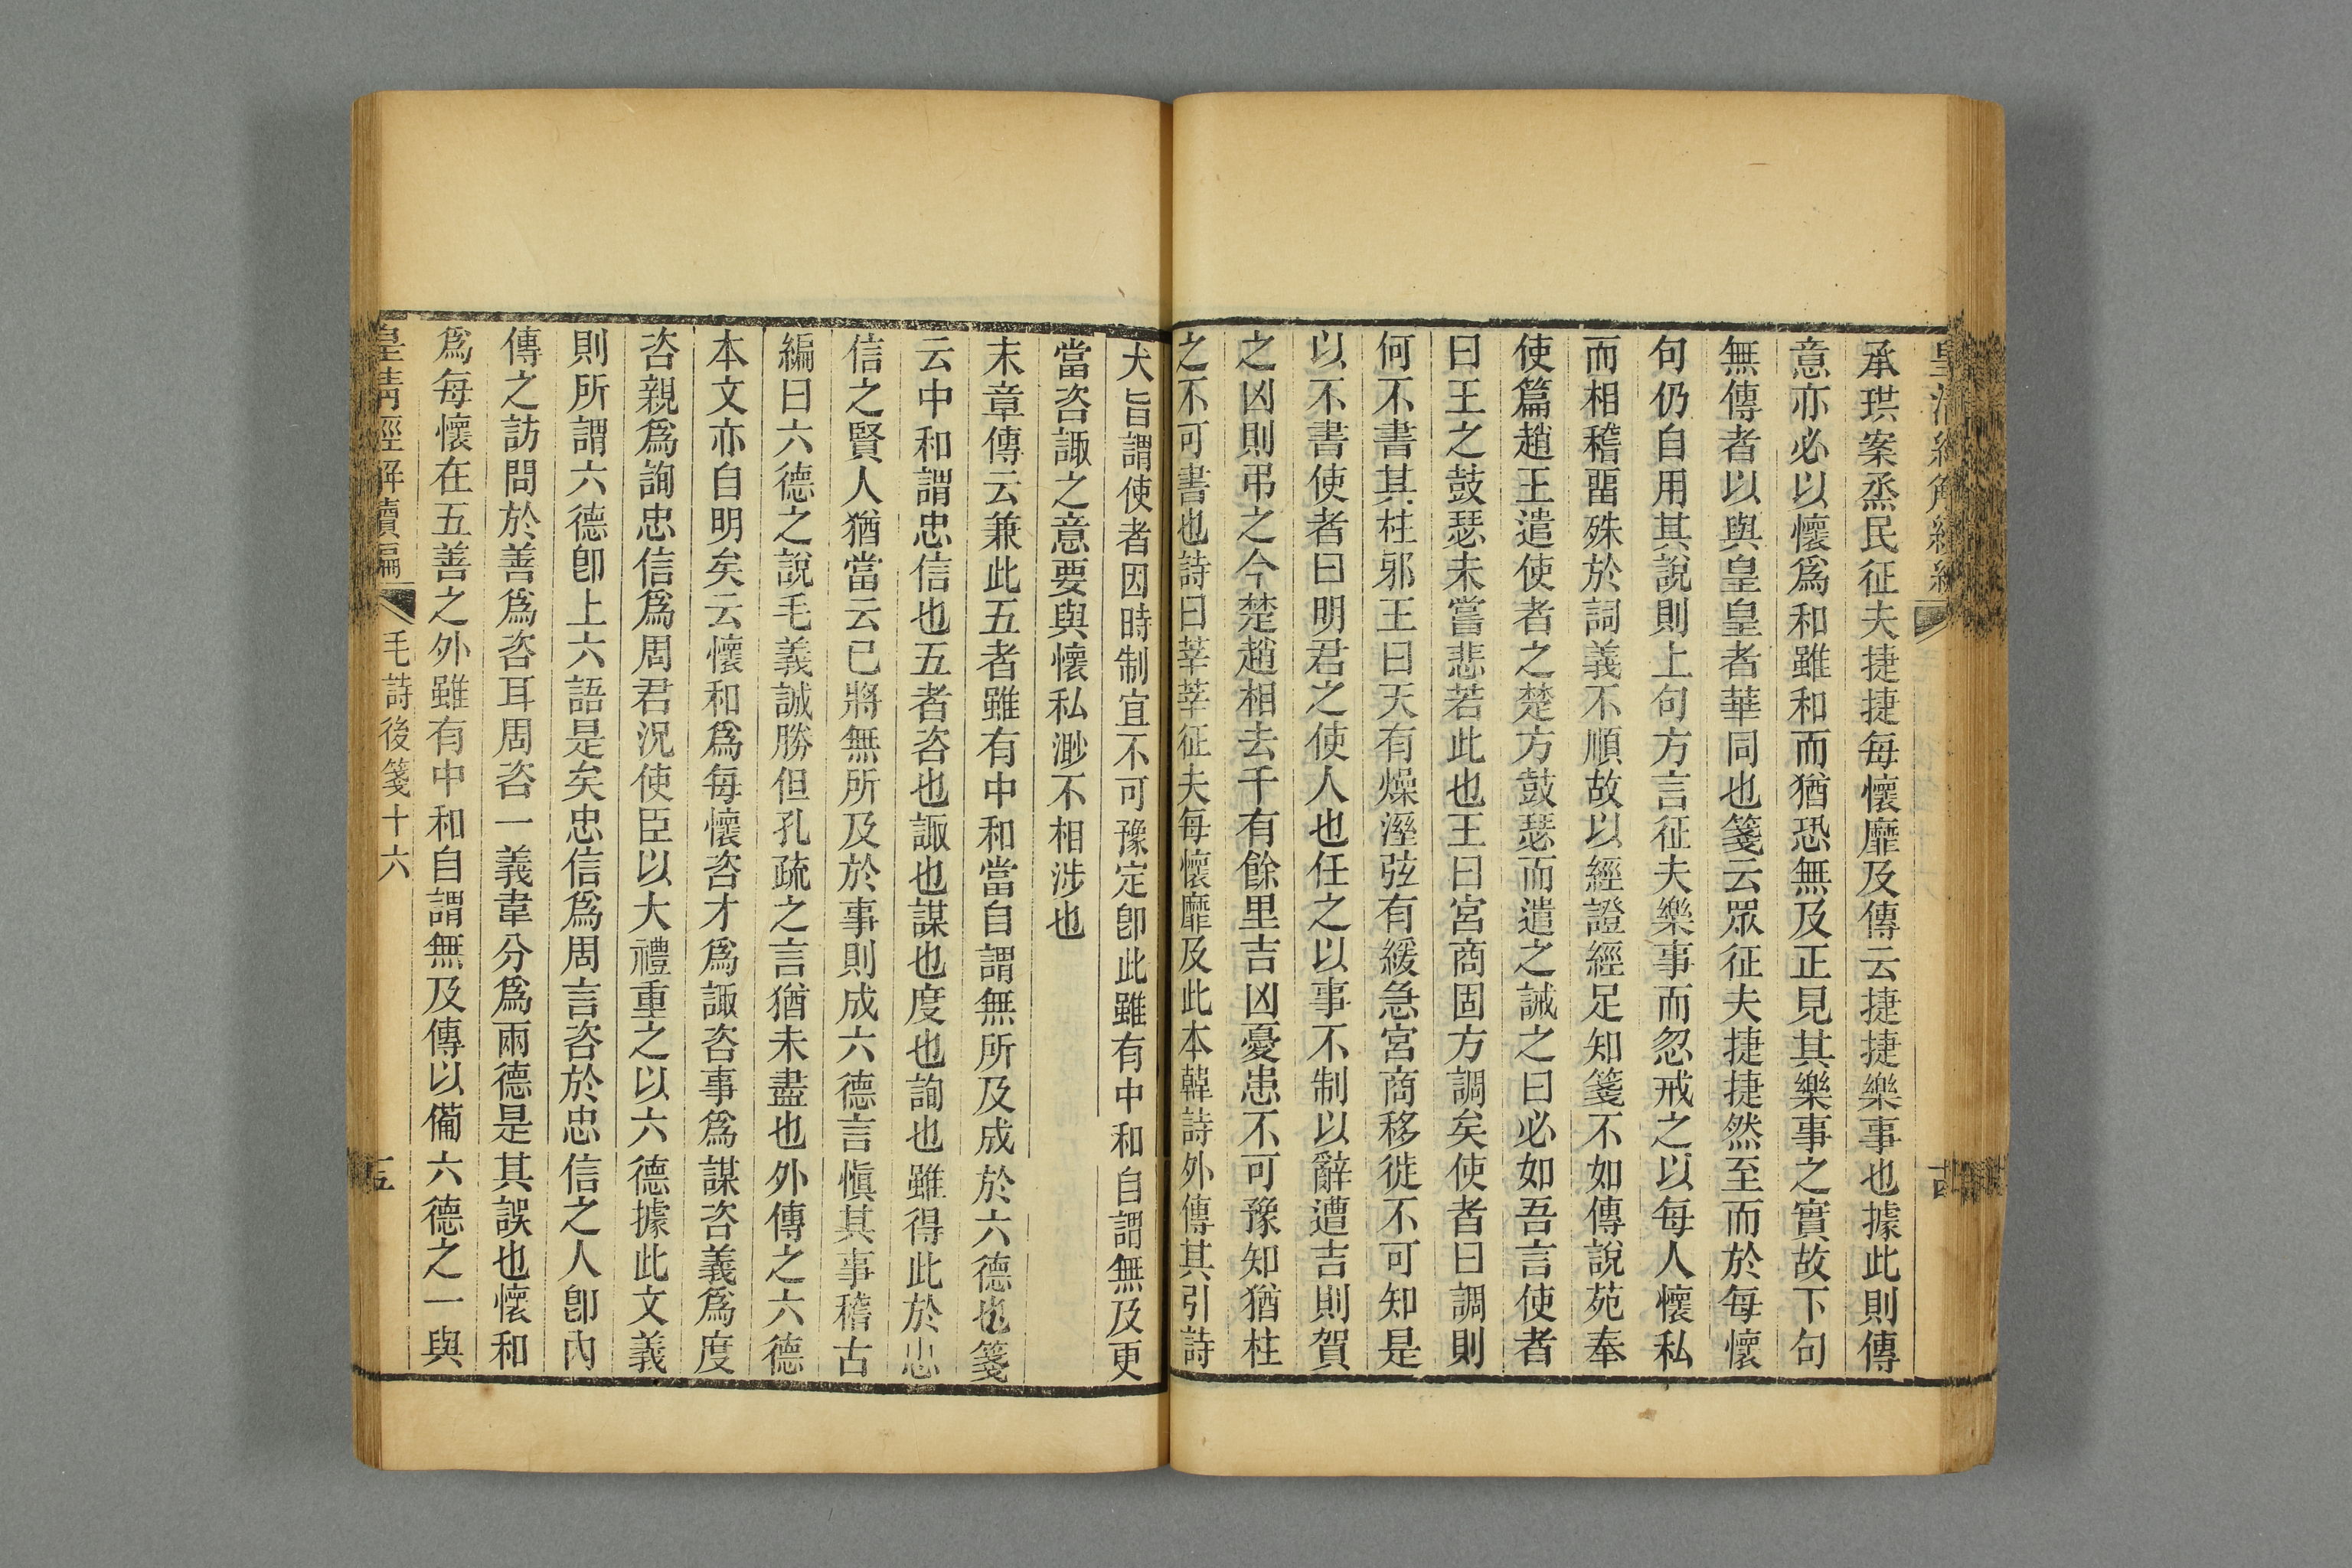 承珙案烝民征夫捷捷每懷靡及傳云捷捷樂事也據此則傳
意亦必以懷爲和雖和而猶恐無及正見其樂事之實故下句
無傳者以與皇皇者華同也箋云眾征夫捷捷然至而於每懷
句仍自用其說則上句方言征夫樂事而忽戒之以每人懷私
而相稽畱殊於詞義不順故以經證經足知箋不如傳說苑奉
使篇趙王遣使者之楚方鼓瑟而遣之誡之曰必如吾言使者
曰王之鼓瑟未嘗悲若此也王曰宮商固方調矣使者曰調則
何不書其柱邪王曰天有燥溼弦有緩急宮商移徙不可知是
以不書使者曰明君之使人也任之以事不制以辭遭吉則賀
之凶則弔之今楚趙相去千有餘里吉凶憂患不可豫知猶柱
之不可書也詩曰莘莘征夫每懷靡及此本韓詩外傳其引詩
大旨謂使者因時制宜不可豫定卽此雖有中和自謂無及更
當咨諏之意要與懷私渺不相涉也
末章傳云兼此五者雖有中和當自謂無所及成於六德也箋
云中和謂忠信也五者咨也諏也謀也度也詢也雖得此於忠
信之賢人猶當云已將無所及於事則成六德言愼其事稽古
編曰六德之說毛義誠勝但孔疏之言猶未盡也外傳之六德
本文亦自明矣云懷和爲每懷咨才爲諏咨事爲謀咨義爲度
咨親爲詢忠信爲周君況使臣以大禮重之以六德據此文義
則所謂六德卽上六語是矣忠信爲周言咨於忠信之人卽內
傳之訪問於善爲咨耳周咨一義韋分爲兩德是其誤也懷和
爲每懷在五善之外雖有中和自謂無及傳以備六德之一與
皇清經解續編
毛詩後箋十六